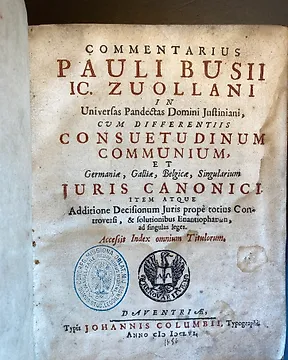 COMMENTARIUS
PAULI BUSII
IC. ZUOLLANI
IN
Universas Pandectas Domini Justiniani,
CUM DIFFERENTIIS
CONSUETUDINUM
COMMUNIUM,
ET
Germaniæ, Galliæ, Belgicæ, Singularium
JURIS CANONICI.
ITEM ATQUE
Additione Decisionum Juris propè totius Con-
troversi, & solutionibus Enantiophanῶn,
ad singulas leges.
Accessit Index omnium Titulorum.
DAVENTRIÆ,
Typis JOHANNIS COLUMBII, Typographi
ANNO CIƆ IƆCLVI.
1656